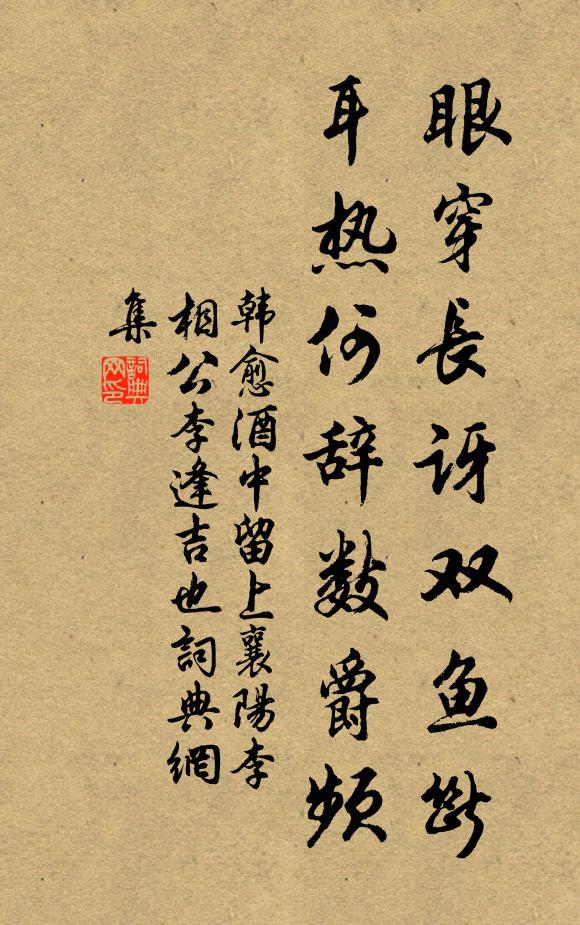 眼穿長訝双鱼断
耳热何辞数爵频
韩愈酒中留上襄陽李
相公李逢吉也詞典網
集
詞典
网印